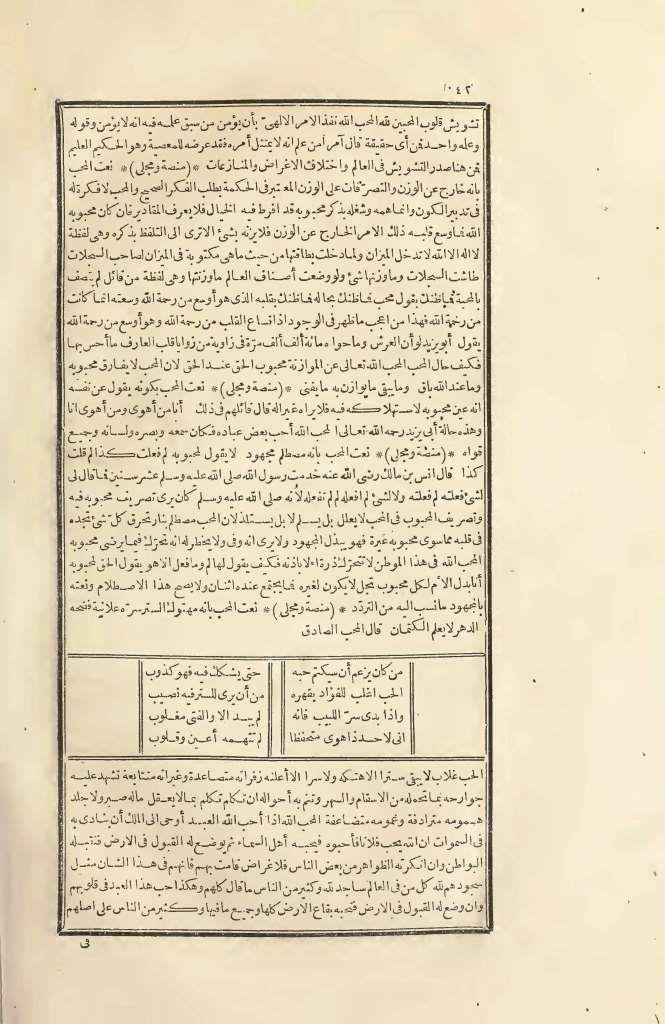 ٠٤٢
تشويش قلوب المحبين لله المحب الله نفذ الامر الالهى بأن يؤمن من سبق علمه فيه انه لا يؤمن وقوله
وعلمه واحد فمن أى حقيقة قال آمر آمن علم انه لا يمتثل أمره فقد عرضه للمعصية وهو الحكيم العليم
فمن هنا صدر التشويش فى العالم واختلاف الاغراض والمنازعات * (منصة ومجلى) * نعت المحب
بانه خارج عن الوزن والتصرفات على الوزن المعتبر فى الحكمة يطلب الفكر الصحيح والمحب لا فكرة له
فى تدبير الكون وانما همه وشغله بذكر محبوبه قد افرط فيه الخيال فلا يعرف المقادير فان كان محبوبه
الله فاوسع قلبه ذلك الامر الخارج عن الوزن فلا يزنه بشئ الاترى الى التلفظ بذكره وهى لفظة
لا اله الا الله لا تدخل الميزان ولما دخلت بطاقتها من حيث ما هى مكتوبة فى الميزان لصاحب السجلات
طاشت السجلات وما وزنها شئ ولو وضعت أصناف العالم ما وزنتها وهى لفظة من قائل لم يتصف
بالمحبة فما ظنك بقول محب فما ظنك بحاله فما ظنك بقلبه الذى هو أوسع من رحمة الله وسعته انما كانت
من رحمة الله فهذا من اعجب ما ظهر فى الوجود اذ اتساع القلب من رحمة الله وهو أوسع من رحمة الله
يقول أبو يزيد لو أن العرش وما حواه مائة ألف ألف مرة فى زاوية من زوايا قلب العارف ما أحس بها
فكيف حال المحب المحب الله تعالى عن الموازنة محبوب الحق عند الحق لان المحب لا يفارق محبوبه
وما عند الله باق وما يبقى ما يوازن به ما يفنى * (منصة ومجلى) * نعت المحب بكونه يقول عن نفسه
انه عين محبوبه لاستهلاكه فيه فلا يراه غيرا له قال قائلهم فى ذلك أنا من أهوى ومن أهوى انا
وهذه حالة أبى يزيد رحمه الله تعالى المحب الله أحب بعض عباده فكان سمعه وبصره ولسانه وجميع
قواه * (منصة ومجلى) * نعت المحب بانه مصطلم مجهود لا يقول لمحبوبه لم فعلت كذا لم قلت
كذا قال انس بن مالك رضى الله عنه خدمت رسول الله صلى الله عليه وسلم عشر سنين فما قال لى
لشئ فعلته لم فعلته ولا لشئ لم افعله لم لم تفعله لانه صلى الله عليه وسلم كان يرى تصريف محبوبه فيه
وتصريف المحبوب فى المحب لا يعلل بل يسلم لا بل يستلذ لان المحب مصطلم بنار تحرق كل شئ تجده
فى قلبه مما سوى محبوبه غيرة فهو يبذل المجهود ولا يرى انه وفى ولا يخطر له انه تحرك فيما يرضى محبوبه
المحب الله فى هذا الموطن لا تتحرك ذرة الا باذنه فكيف يقول لها لم وما فعل الا هو يقول الحق لمحبوبه
أنا بدك الا ثم لكل محبوب تجل لا يكون لغيره فما يجتمع عنده اثنان ولا يصح هذا الاصطلام ونعته
بالمجهود ما نسب اليه من التردد * (منصة ومجلى) * نعت المحب بانه مهتوك الستر سره علانية فضحه
الدهر لا يعلم الكتمان قال المحب الصادق
من كان يزعم أن سيكتم حبه حتى يشكك فيه فهو كذوب
الحب اغلب للفؤاد بقهره من أن يرى للستر فيه نصيب
واذا بدى سر اللبيب فانه لم يبد الا والفتى مغلوب
انى لاحسد ذا هوى متحفظا لم تتهمه أعين وقلوب
الحب غلاب لا يبقى سترا الا هتكه ولا سرا الا أعلنه زفراته متصاعدة وعبراته متتابعة تشهد عليه
جوارحه بما تحمله من الاسقام والسهر وتنم به أحواله ان تكلم تكلم بما لا يعقل ماله صبر ولا جلد
همومه مترادفة وغمومه متضاعفة المحب الله اذا أحب الله العبد أوحى الى الملك أن ينادى به
فى السموات ان الله يحب فلانا فأحبوه فيحبه أهل السماء ثم يوضع له القبول فى الارض فتقبله
البواطن وان انكرته الظواهر من بعض الناس فلاغراض قامت بهم فانهم فى هذا الشان مثل
سجودهم لله كل من فى العالم ساجد لله وكثير من الناس ما قال كلهم وهكذا حب هذا العبد فى قلوبهم
وان وضع له القبول فى الارض فتحبه بقاع الارض كلها وجميع ما فيها وكثير من الناس على اصلهم
فى